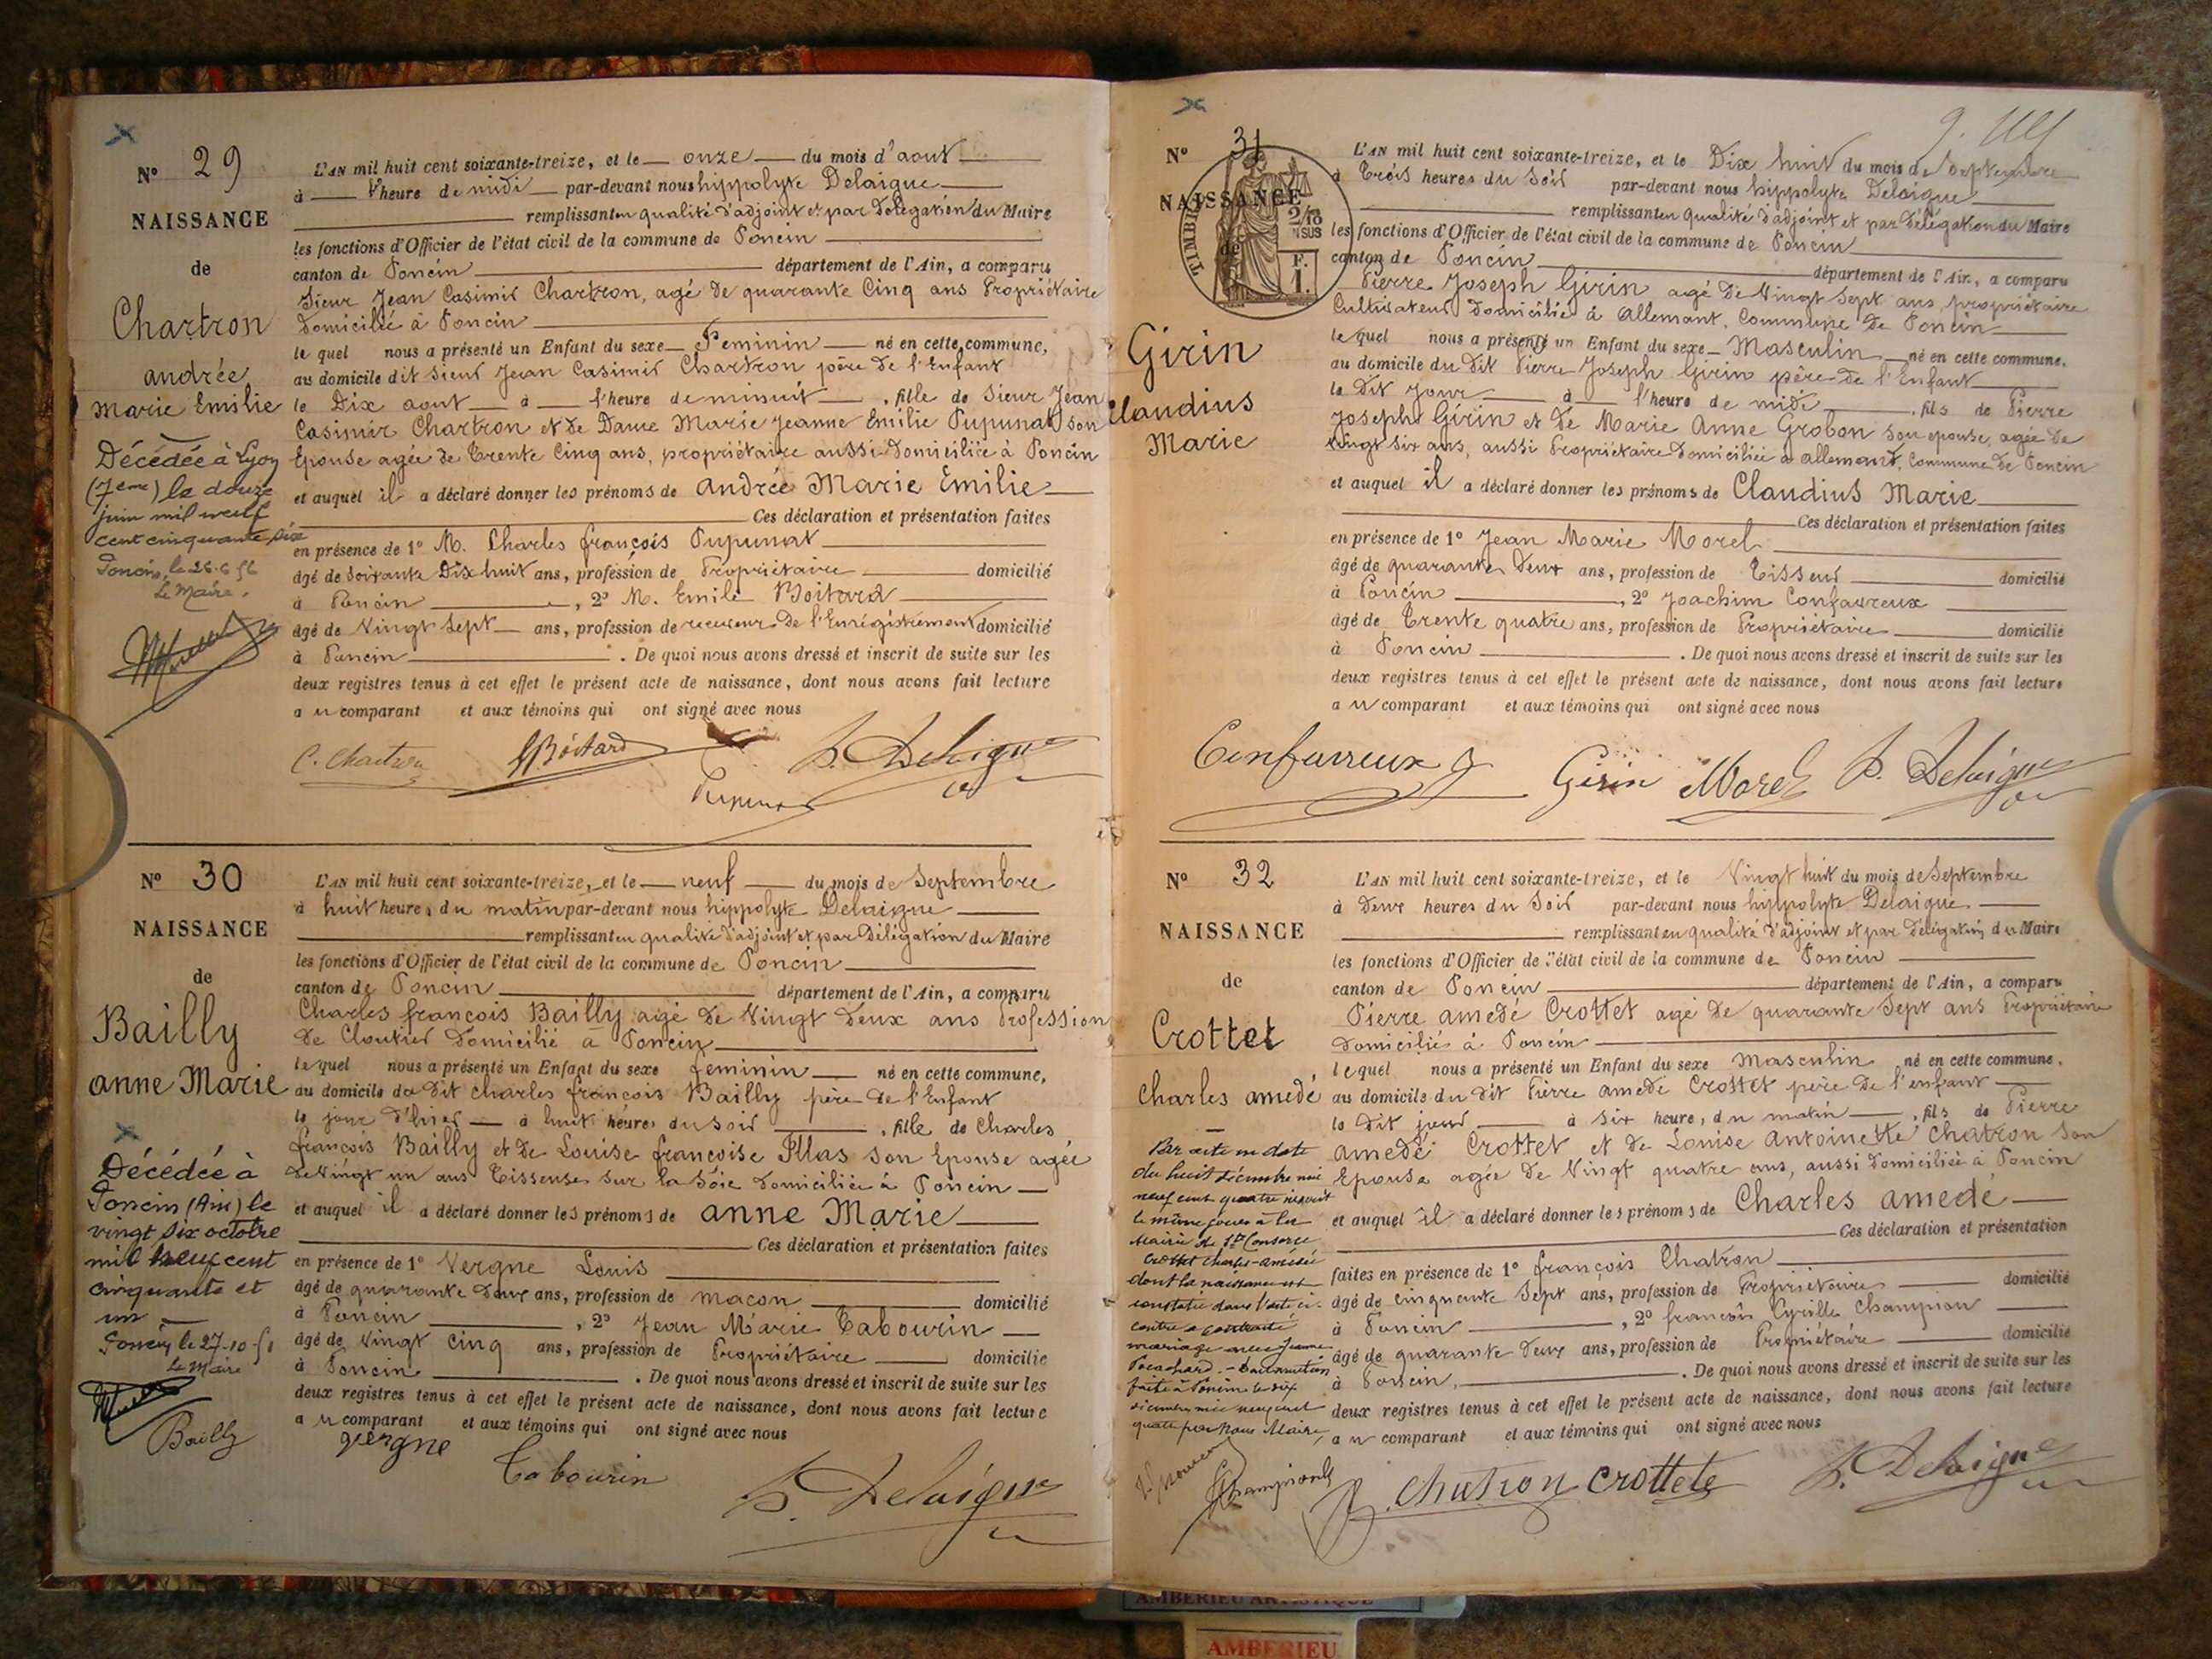 Nº 29
NAISSANCE
de
Chartron
andrée
Marie Emilie
Décédée à Lyon
(7eme) le douze
juin mil neuf
cent cinquante six
Poncin, le 26.6.56
Le Maire.
L'AN mil huit cent soixante-treize, et le onze du mois d'aout
à l'heure de midi par-devant nous hippolyte Delaigue
remplissant en qualité d'adjoint et par Délégation du Maire
les fonctions d'Officier de l'état civil de la commune de Poncin
canton de Poncin département de l'Ain, a comparu
Sieur Jean Casimir Chartron, agé de quarante Cinq ans Propriétaire
Domicilié à Poncin
lequel nous a présenté un Enfant du sexe Feminin né en cette commune,
au domicile dit Sieur Jean Casimir Chartron père de l'Enfant
le Dix aout à l'heure de minuit, fille de Sieur Jean
Casimir Chartron et de Dame Marie Jeanne Emilie Pupunat son
Epouse agée de Trente Cinq ans, propriétaire aussi Domiciliée à Poncin
et auquel il a déclaré donner les prénoms de andrée Marie Emilie
Ces déclaration et présentation faites
en présence de 1º M. Charles françois Pupunat
âgé de Soixante Dix huit ans, profession de Propriétaire domicilié
à Poncin, 2º M. Emile Boitard
âgé de Vingt Sept ans, profession de receveur De l'Enregistrement domicilié
à Poncin. De quoi nous avons dressé et inscrit de suite sur les
deux registres tenus à cet effet le présent acte de naissance, dont nous avons fait lecture
au comparant et aux témoins qui ont signé avec nous
C. Chartron Boitard Pupunat h. Delaigue
Nº 30
NAISSANCE
de
Bailly
anne Marie
Décédée à
Poncin (Ain) le
vingt six octobre
mil neuf cent
cinquante et
un
Poncin, le 27-10-51
Le Maire
L'AN mil huit cent soixante-treize, et le neuf du mois de Septembre
à huit heures du matin par-devant nous hippolyte Delaigue
remplissant en qualité d'adjoint et par Délégation du Maire
les fonctions d'Officier de l'état civil de la commune de Poncin
canton de Poncin département de l'Ain, a comparu
Charles françois Bailly agé de Vingt Deux ans Profession
de Cloutier Domicilié à Poncin
lequel nous a présenté un Enfant du sexe feminin né en cette commune,
au domicile du Dit Charles françois Bailly père de l'Enfant
le jour d'hier à huit heures du Soir, fille de Charles
françois Bailly et de Louise françoise son Epouse agée
de Vingt un ans Tisseuse sur la Soie Domiciliée à Poncin
et auquel il a déclaré donner les prénoms de anne Marie
Ces déclaration et présentation faites
en présence de 1º Vergne Louis
âgé de quarante Deux ans, profession de macon domicilié
à Poncin, 2º Jean Marie Tabourin
âgé de Vingt Cinq ans, profession de Propriétaire domicilié
à Poncin. De quoi nous avons dressé et inscrit de suite sur les
deux registres tenus à cet effet le présent acte de naissance, dont nous avons fait lecture
au comparant et aux témoins qui ont signé avec nous
Bailly Vergne Tabourin h. Delaigue
Nº 31
NAISSANCE
de
TIMBRE
2/10
EN SUS
F.
1.
Girin
Claudius
Marie
L'AN mil huit cent soixante-treize, et le Dix huit du mois de Septembre
à Trois heures du Soir par-devant nous hippolyte Delaigue
remplissant en qualité d'adjoint et par Délégation du Maire
les fonctions d'Officier de l'état civil de la commune de Poncin
canton de Poncin département de l'Ain, a comparu
Pierre Joseph Girin agé de Vingt Sept ans, propriétaire
Cultivateur Domicilié à allemant, Commune de Poncin
lequel nous a présenté un Enfant du sexe Masculin né en cette commune.
au domicile du Dit Pierre Joseph Girin père de l'Enfant
le Dit Jour à l'heure de midi, fils de Pierre
Joseph Girin et de Marie Anne Grobon son epouse, agée de
Vingt Six ans, aussi Propriétaire Domiciliée à allemant, Commune de Poncin
et auquel il a déclaré donner les prénoms de Claudius Marie
Ces déclaration et présentation faites
en présence de 1º Jean Marie Morel
âgé de quarante Deux ans, profession de Tisseur domicilié
à Poncin, 2º Joachim Confavreux
âgé de Trente quatre ans, profession de Propriétaire domicilié
à Poncin. De quoi nous avons dressé et inscrit de suite sur les
deux registres tenus à cet effet le présent acte de naissance, dont nous avons fait lecture
au comparant et aux témoins qui ont signé avec nous
Confavreux J Girin Morel h. Delaigue
Nº 32
NAISSANCE
de
Crottet
Charles amedé
Par acte en date
du huit décembre mil
neuf cent quatre
le même jour à la
Mairie de Ste Consorce
Crottet Charles-amédée
dont la naissance est
constatée dans l'acte ci-
contre a contracté
mariage avec Jeanne
faite à Poncin le dix
décembre mil neuf cent
quatre par Nous Maire,
L'AN mil huit cent soixante-treize, et le Vingt huit du mois de Septembre
à Deux heures du Soir par-devant nous hippolyte Delaigue
remplissant en qualité d'adjoint et par Délégation du Maire
les fonctions d'Officier de l'état civil de la commune de Poncin
canton de Poncin département de l'Ain, a comparu
Pierre amedé Crottet agé de quarante Sept ans Propriétaire
Domicilié à Poncin
lequel nous a présenté un Enfant du sexe masculin né en cette commune.
au domicile du Dit Pierre amedé Crottet père de l'enfant
le Dit jour à Six heures du matin, fils de Pierre
amedé Crottet et de Louise Antoinette Chatron Son
Epouse agée de Vingt quatre ans, aussi Domiciliée à Poncin
et auquel il a déclaré donner les prénoms de Charles amedé
Ces déclaration et présentation
faites en présence de 1º françois Chatron
âgé de Cinquante Sept ans, profession de Propriétaire domicilié
à Poncin, 2º françois Cyrille Champion
âgé de quarante Deux ans, profession de Propriétaire domicilié
à Poncin. De quoi nous avons dressé et inscrit de suite sur les
deux registres tenus à cet effet le présent acte de naissance, dont nous avons fait lecture
au comparant et aux témoins qui ont signé avec nous
Champion Chatron Crottet h. Delaigue
AMBERIEU ARTISTIQUE
AMBERIEU